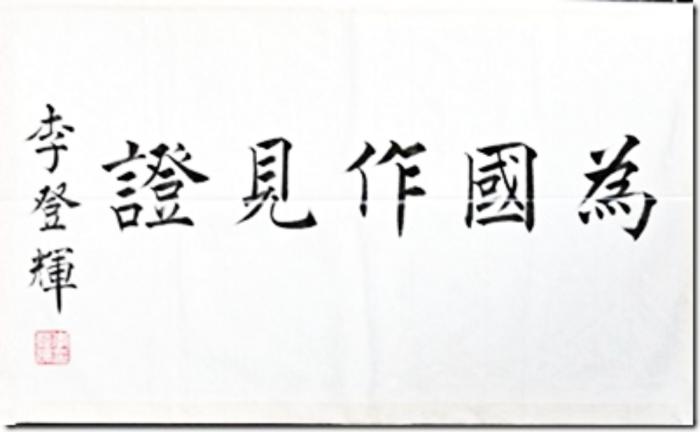 為國作見證
李登輝